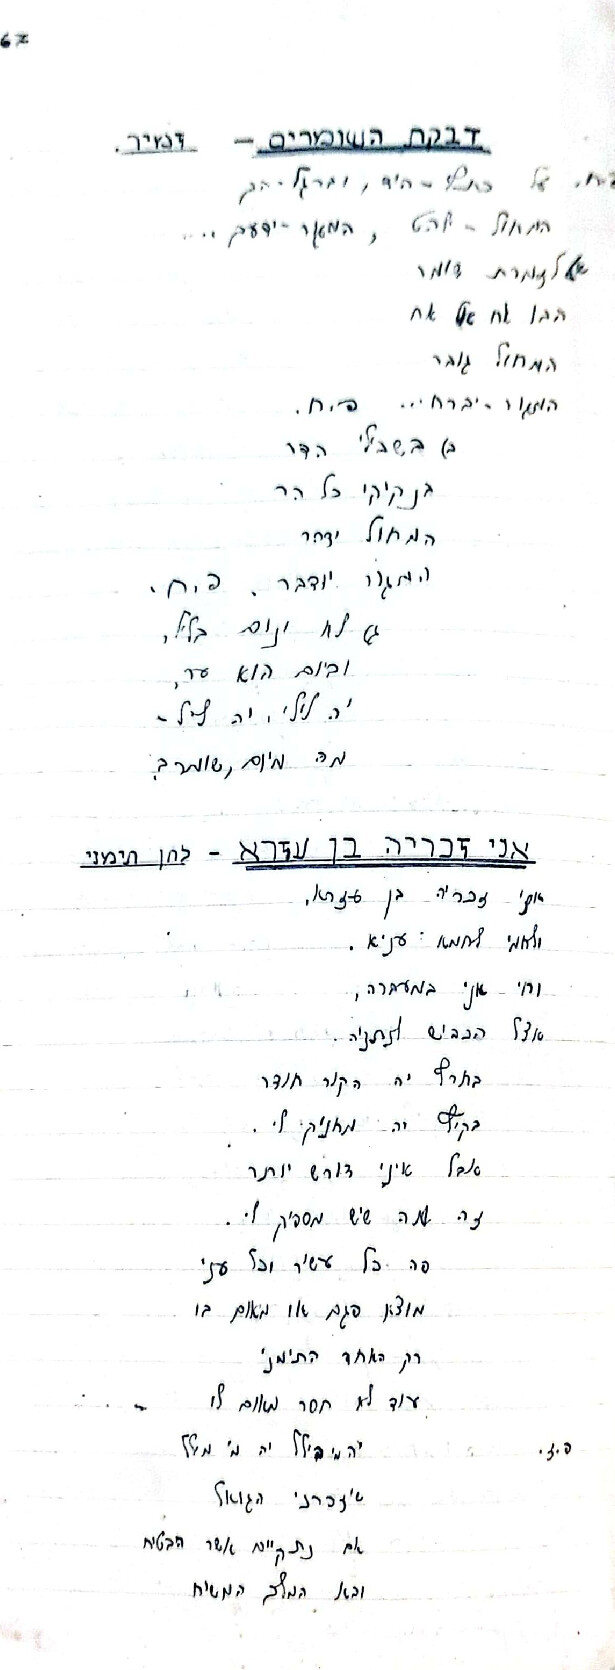 67
דבקת השומרים – זמיר.
פ.ח. על כתף - היד, וברגל - הב
המחול - ילהט, המגור - ידעך ....
א) לזמרת שומר
הבו אח אל אח
המחול גובר
המגור - יברח... פ.ח.
ב) בשבילי הדר
בנקיקי כל הר
המחול יצהר
המגור יודבר. פ.ח.
ג) לא ינום בליל,
וביום הוא ער,
יה לילי, יה ליל -
מה מיום, שומר?
אני זכריה בן עזרא – לחן תימני
אני זכריה בן עזרא,
ולחמי לחמא עניא.
וחי אני במעברה,
אצל הכביש לנתניה.
בחורף יה הקור חודר
בקיץ יה מחניק לי.
אבל איני דורש יותר
זה מה שיש מספיק לי.
פה כל עשיר וכל עני
מוצא פגם או מאום בו
רק האחד התימני
עוד לא חסר מאום לו
פ.ז. יה מי יבילל יה מי מילל
שיזכרני הגואל
אם נתקיים אשר הבטיח
ובא המלך המשיח